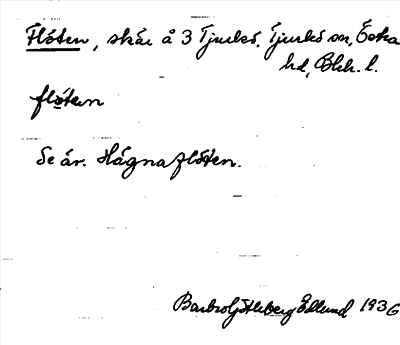 Flöten, skär å 3 Tjurkö, Tjurkö sn, Östra
hd, Blek. l.
flöten
Se äv. Hågnaflöten.
Barbro Götleberg Edlund 1936